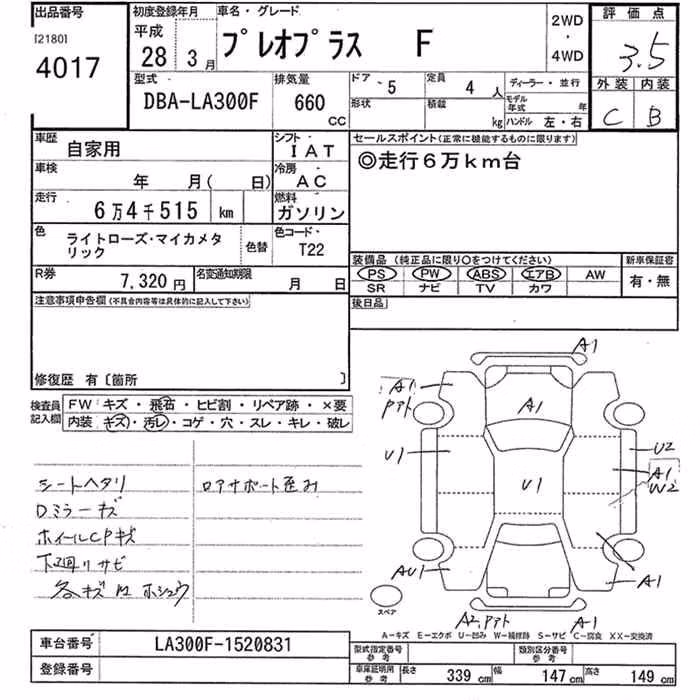 出品番号
[2180]
4017
初度登録年月
平成
28年 3月
車名・グレード
プレオプラス F
2WD
・
4WD
評価点
3.5
型式
DBA-LA300F
排気量
660
CC
ドア 5
定員 4人
ディーラー・並行
形状
積載 kg
モデル年式 年
ハンドル 左・右
外装 内装
C B
車歴
自家用
シフト
I AT
車検
年 月( 日)
冷房
AC
走行
6万4千515 km
燃料
ガソリン
色
ライトローズ・マイカメタリック
色替
色コード
T22
R券
7,320円
名変通知期限
月 日
セールスポイント(正常に機能するものに限ります)
◎走行6万km台
装備品 (純正品に限り○をつけてください)
新車保証書
PS PW ABS エアB AW
SR ナビ TV カワ
有・無
後日品
注意事項申告欄(不具合内容等は具体的に記入して下さい)
修復歴 有〔箇所 〕
検査員記入欄
FW キズ・飛石・ヒビ割・リペア跡・×要
内装 キズ・汚レ・コゲ・穴・スレ・キレ・破レ
シートヘタリ
ロアサポート歪み
Dミラーキズ
ホイールCPキズ
下廻りサビ
各キズ凹 ホシュウ
A1
A1
Pアト
A1
U1
U2
A1
W2
U1
AU1
A1
スペア
A2,Pアト
A1
A-キズ E-エクボ U-凹み W-補修跡 S-サビ C-腐食 XX-交換済
車台番号
LA300F-1520831
登録番号
型式指定番号
参考
類別区分番号
参考
車庫証明用
参考
長さ 339cm
幅 147cm
高さ 149cm